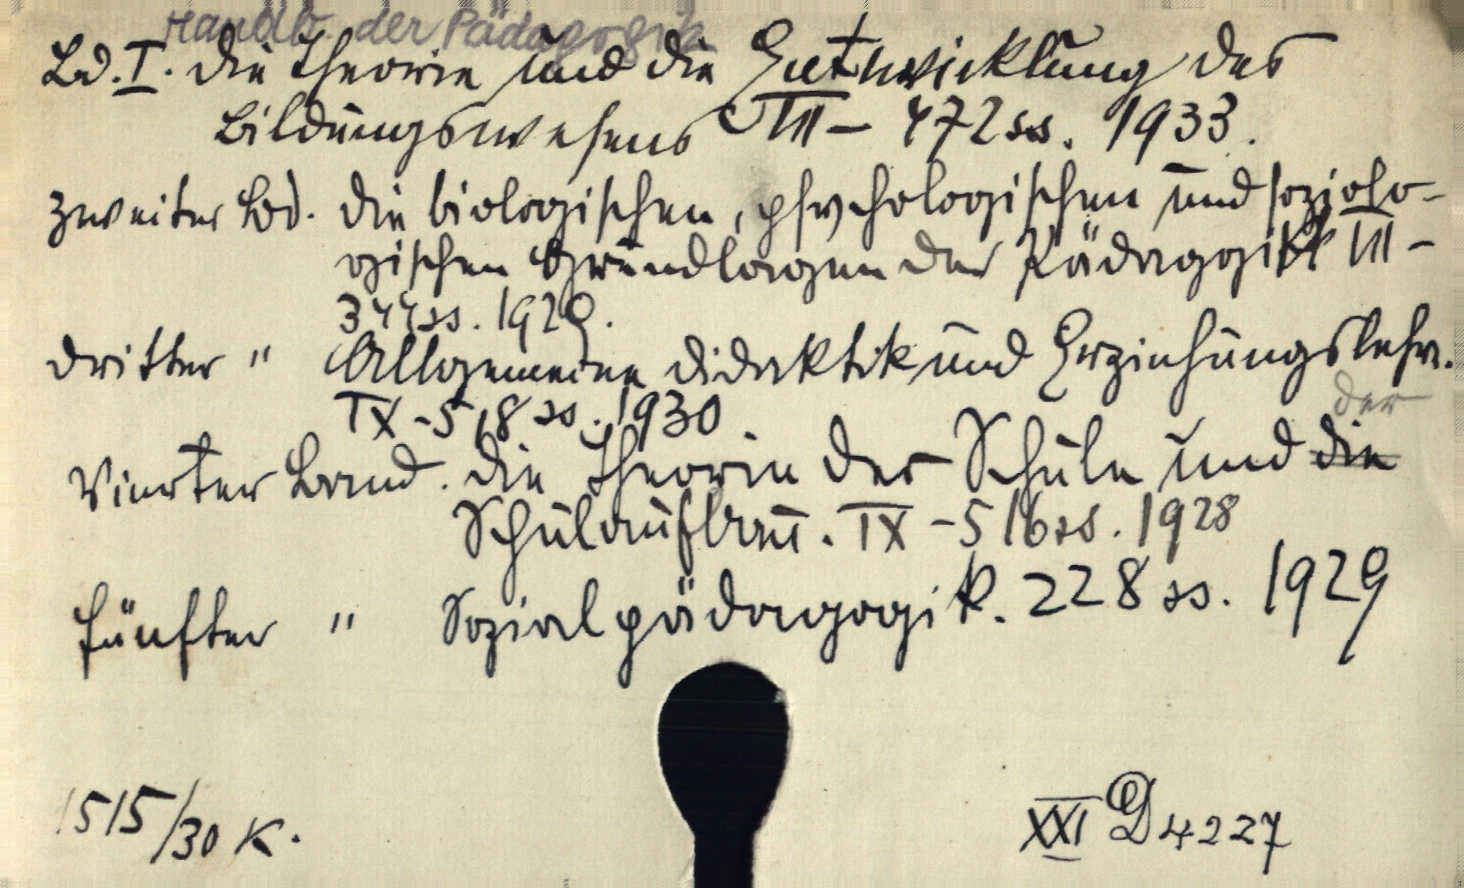 Handb. der Pädagogik
Bd. I. die Theorie und die Entwicklung des
Bildungswesens VIII – 472 ss. 1933.
zweiter Bd. die biologischen, psychologischen und soziolo-
gischen Grundlagen der Pädagogik VIII –
344 ss. 1929.
dritter " Allgemeine Didaktik und Erziehungslehre.
IX - 518 ss. 1930.
der
Vierter Band. die Theorie der Schule und die
Schulaufbau. IX – 516 ss. 1928
fünfter " Sozialpädagogik. 228 ss. 1929
1515/30 K.
XXI D 4227